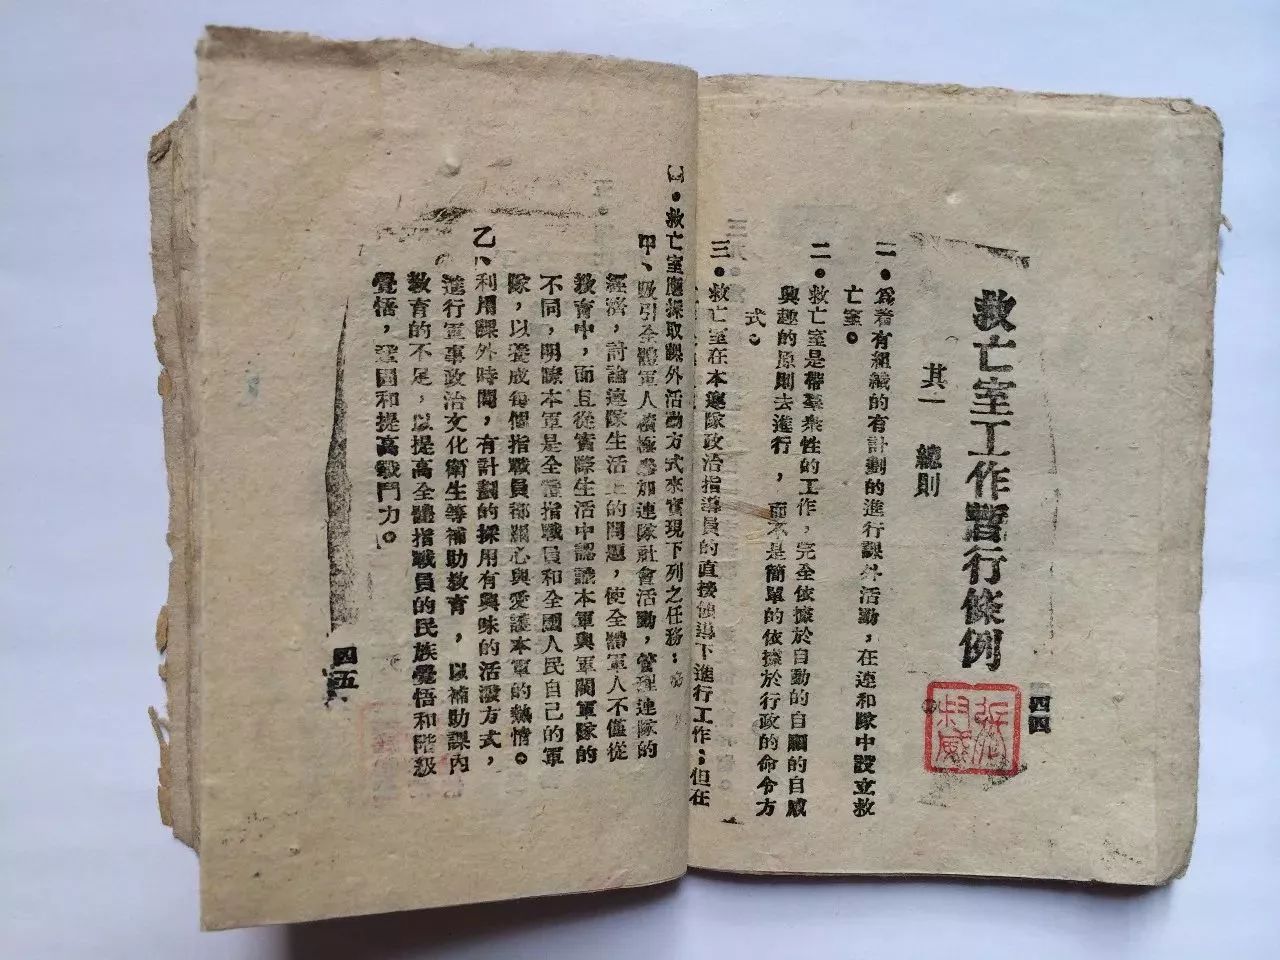 救亡室工作暫行條例
其一 總則
一．為着有組織的有計劃的進行課外活動，在連和隊中設立救
亡室。
二．救亡室是帶羣衆性的工作，完全依據於自動的自願的自感
興趣的原則去進行，而不是簡單的依據於行政的命令方
式。
三．救亡室在本連隊政治指導員的直接領導下進行工作；但在
四四
．救亡室應採取課外活動方式來實現下列之任務；
甲、吸引全體軍人積極參加連隊社會活動，管理連隊的
經濟，討論連隊生活上的問題，使全體軍人不僅從
教育中，而且從實際生活中認識本軍與軍閥軍隊的
不同，明瞭本軍是全體指戰員和全國人民自己的軍
隊，以養成每個指戰員都關心與愛護本軍的熱情。
乙、利用課外時間，有計劃的採用有興味的活潑方式，
進行軍事政治文化衛生等補助教育，以補助課內
教育的不足，以提高全體指戰員的民族覺悟和階級
覺悟，鞏固和提高戰鬥力。
四五